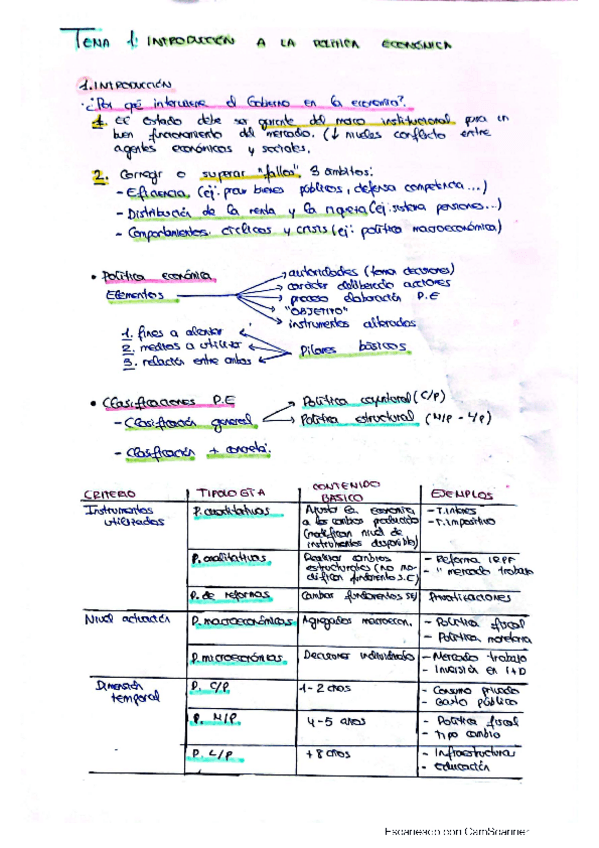 TEMA 1: INTRODUCCIÓN A LA POLÍTICA ECONÓMICA
1. INTRODUCCIÓN
· ¿Por qué interviene el Gobierno en la economía?
1. El estado debe ser garante del marco institucional para un
buen funcionamiento del mercado. (↓ niveles conflicto entre
agentes económicos y sociales.
2. Corregir o superar "fallos", 3 ámbitos:
- Eficiencia (ej: prov bienes públicos, defensa competencia...)
- Distribución de la renta y la riqueza (ej: sistema pensiones...)
- Comportamientos cíclicos y crisis (ej: política macroeconómica)
• Política económica
Elementos
autoridades (toma decisiones)
carácter deliberado acciones
proceso elaboración P.E
"OBJETIVO"
instrumentos alterados
1. fines a alcanzar
2. medios a utilizar
3. relación entre ambas
Pilares básicos
• Clasificaciones P.E
- Clasificación general
Política coyuntural (C/P)
Política estructural (M/P - L/P)
- Clasificación + concreta:
CRITERIO TIPOLOGÍA CONTENIDO BÁSICO EJEMPLOS
Instrumentos utilizados
P. cuantitativas
Ajusta la economía
a los cambios producidos
(modifican nivel de
instrumentos disponible)
- T. interes
- T. impositivo
P. cualitativas
Realizar cambios
estructurales (no mo-
difican fundamento S.E)
- Reforma IRPF
- " mercado trabajo
P. de reformas
Cambiar fundamentos SE
Privatizaciones
Nivel actuación
P. macroeconómicas
Agregados macroecon.
- Política fiscal
- Política monetaria
P. microeconómicas
Decisiones individuales
- Mercado trabajo
- Inversión en I+D
Dimensión temporal
P. C/P
1-2 años
- Consumo privado
- Gasto público
P. M/P
4-5 años
- Política fiscal
- Tipo cambio
P. L/P
+8 años
- Infraestructura
- educación
Escaneado con CamScanner